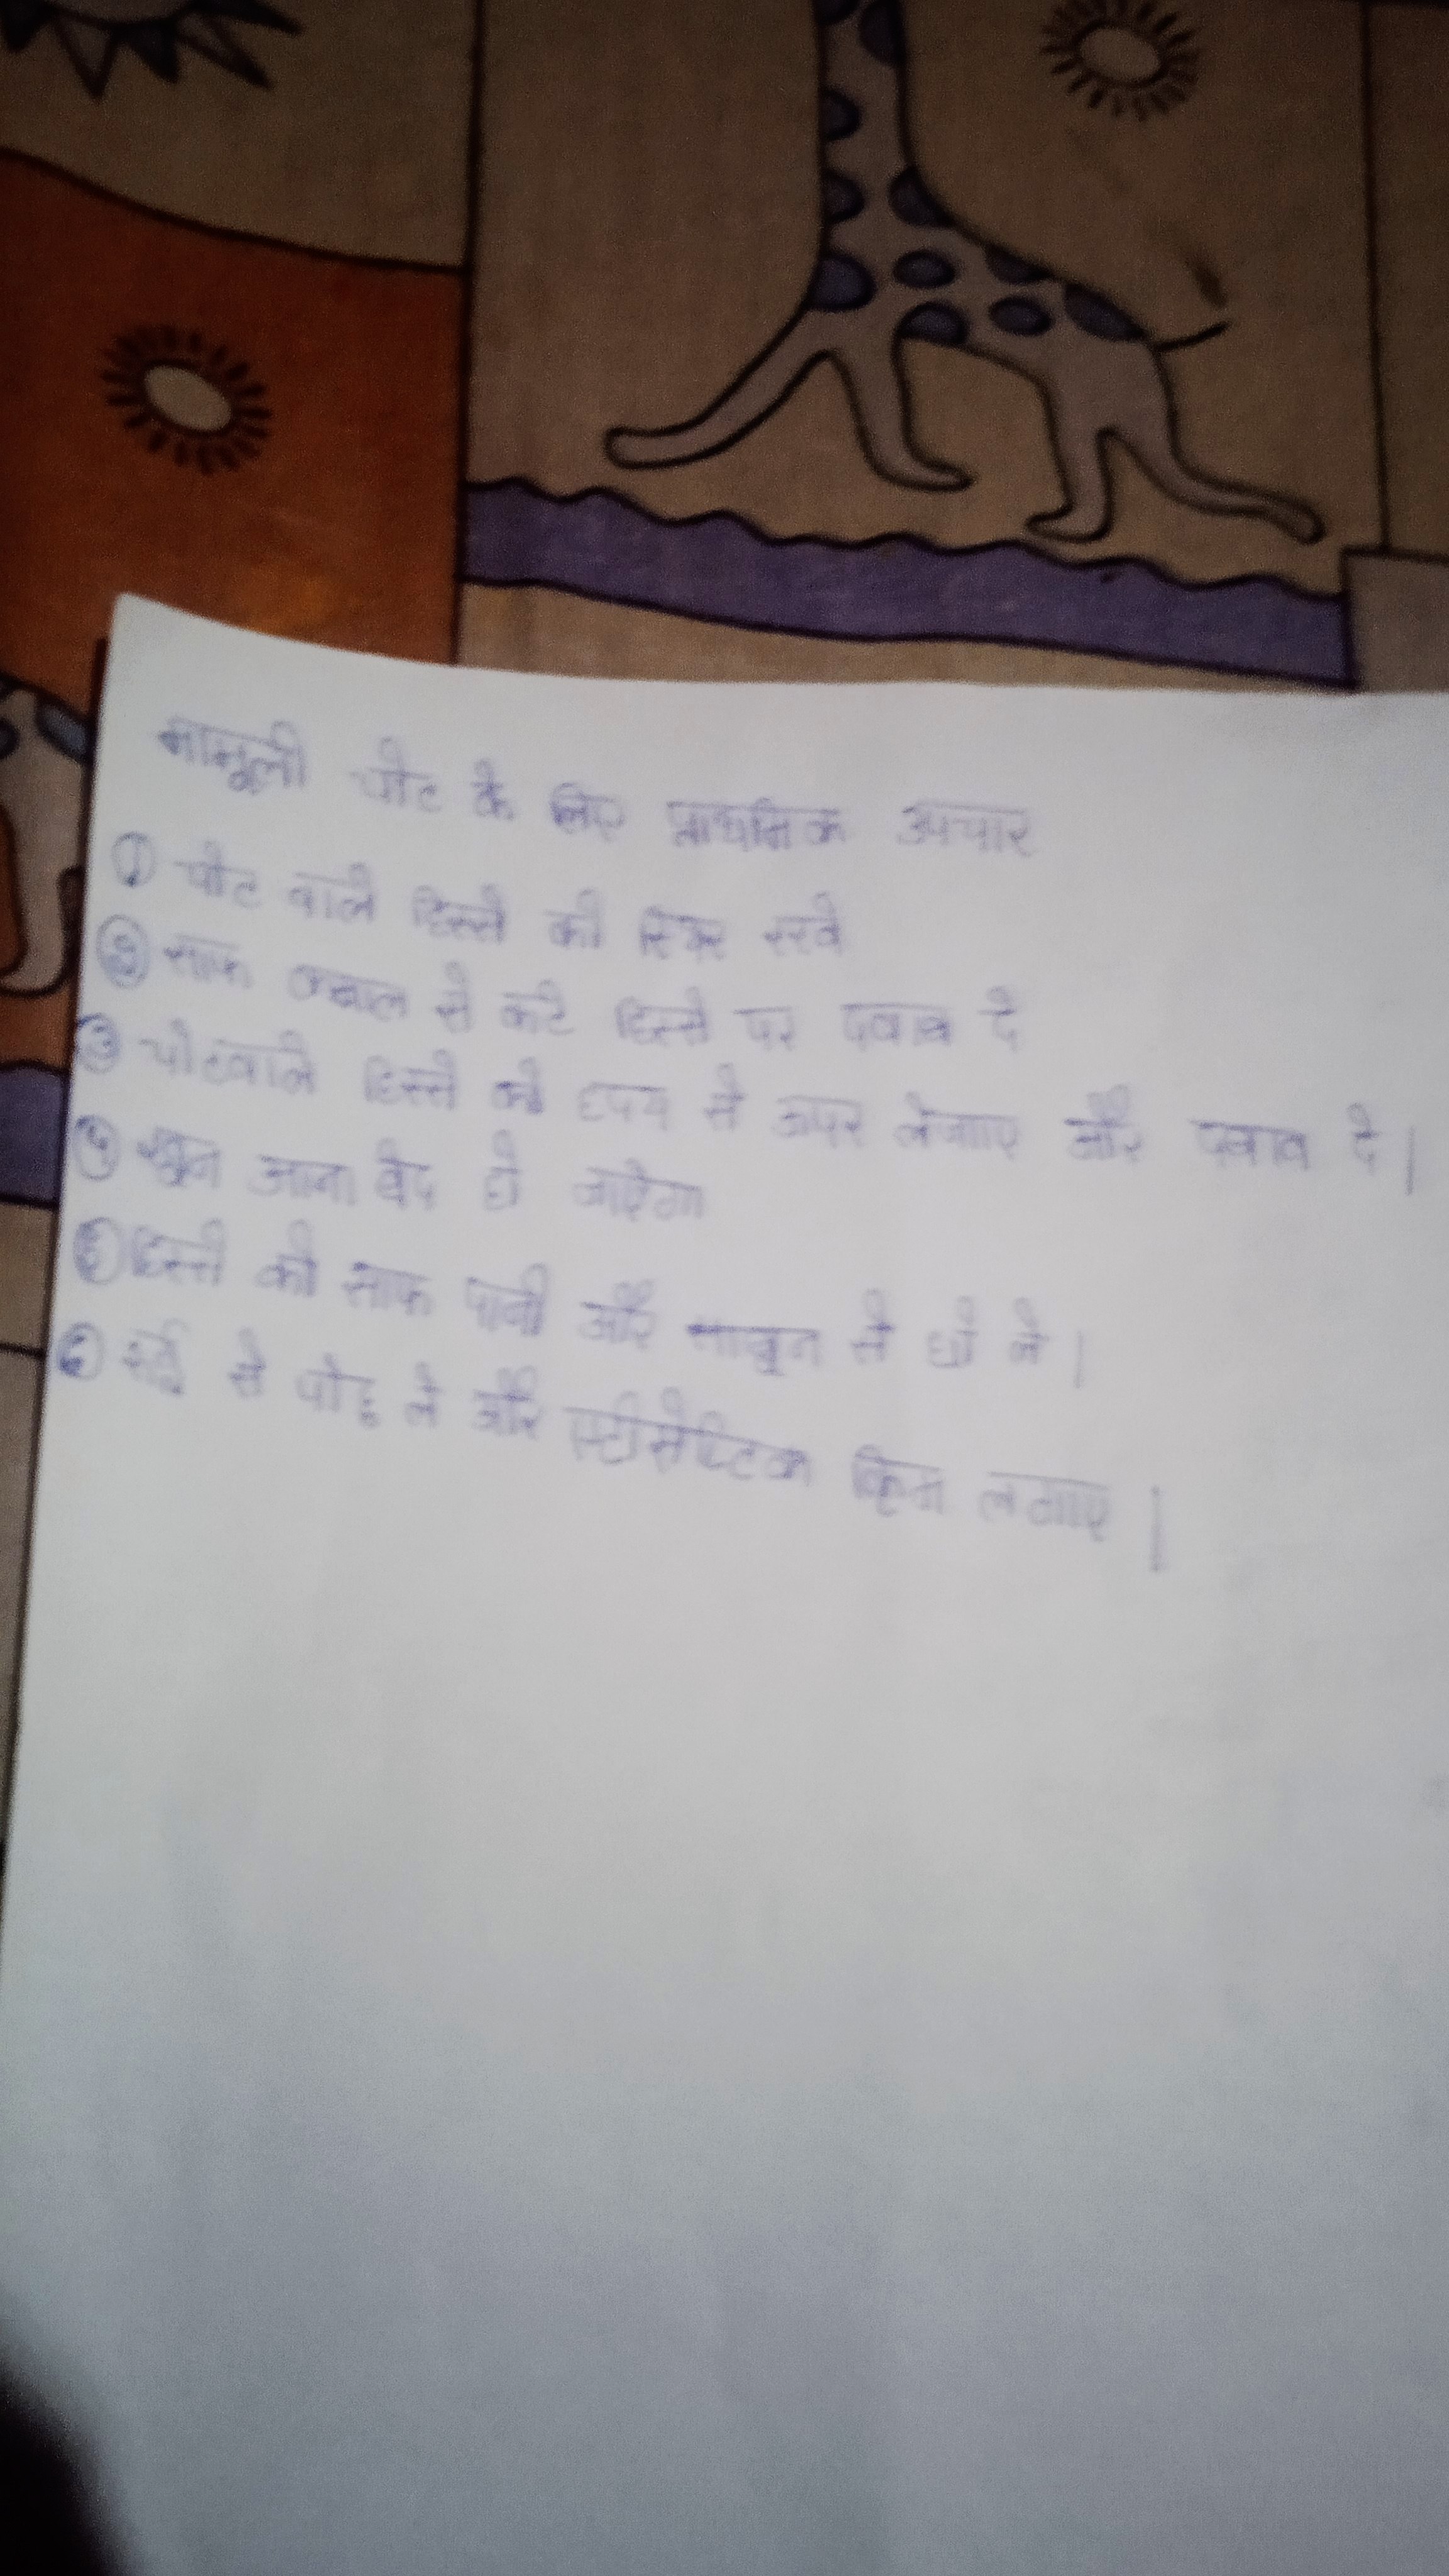 मामूली चोट के लिए प्राथमिक उपचार
① चोट वाले हिस्से को स्थिर रखे
② साफ रूमाल से कटे हिस्से पर दबाव दे
③ चोटवाले हिस्से को हृदय से ऊपर लेजाए और दबाव दे।
④ खून आना बंद हो जाऐगा
⑤ हिस्से को साफ पानी और साबुन से धो ले।
⑥ रुई से पोछ ले और एंटीसेप्टिक क्रिम लगाए।